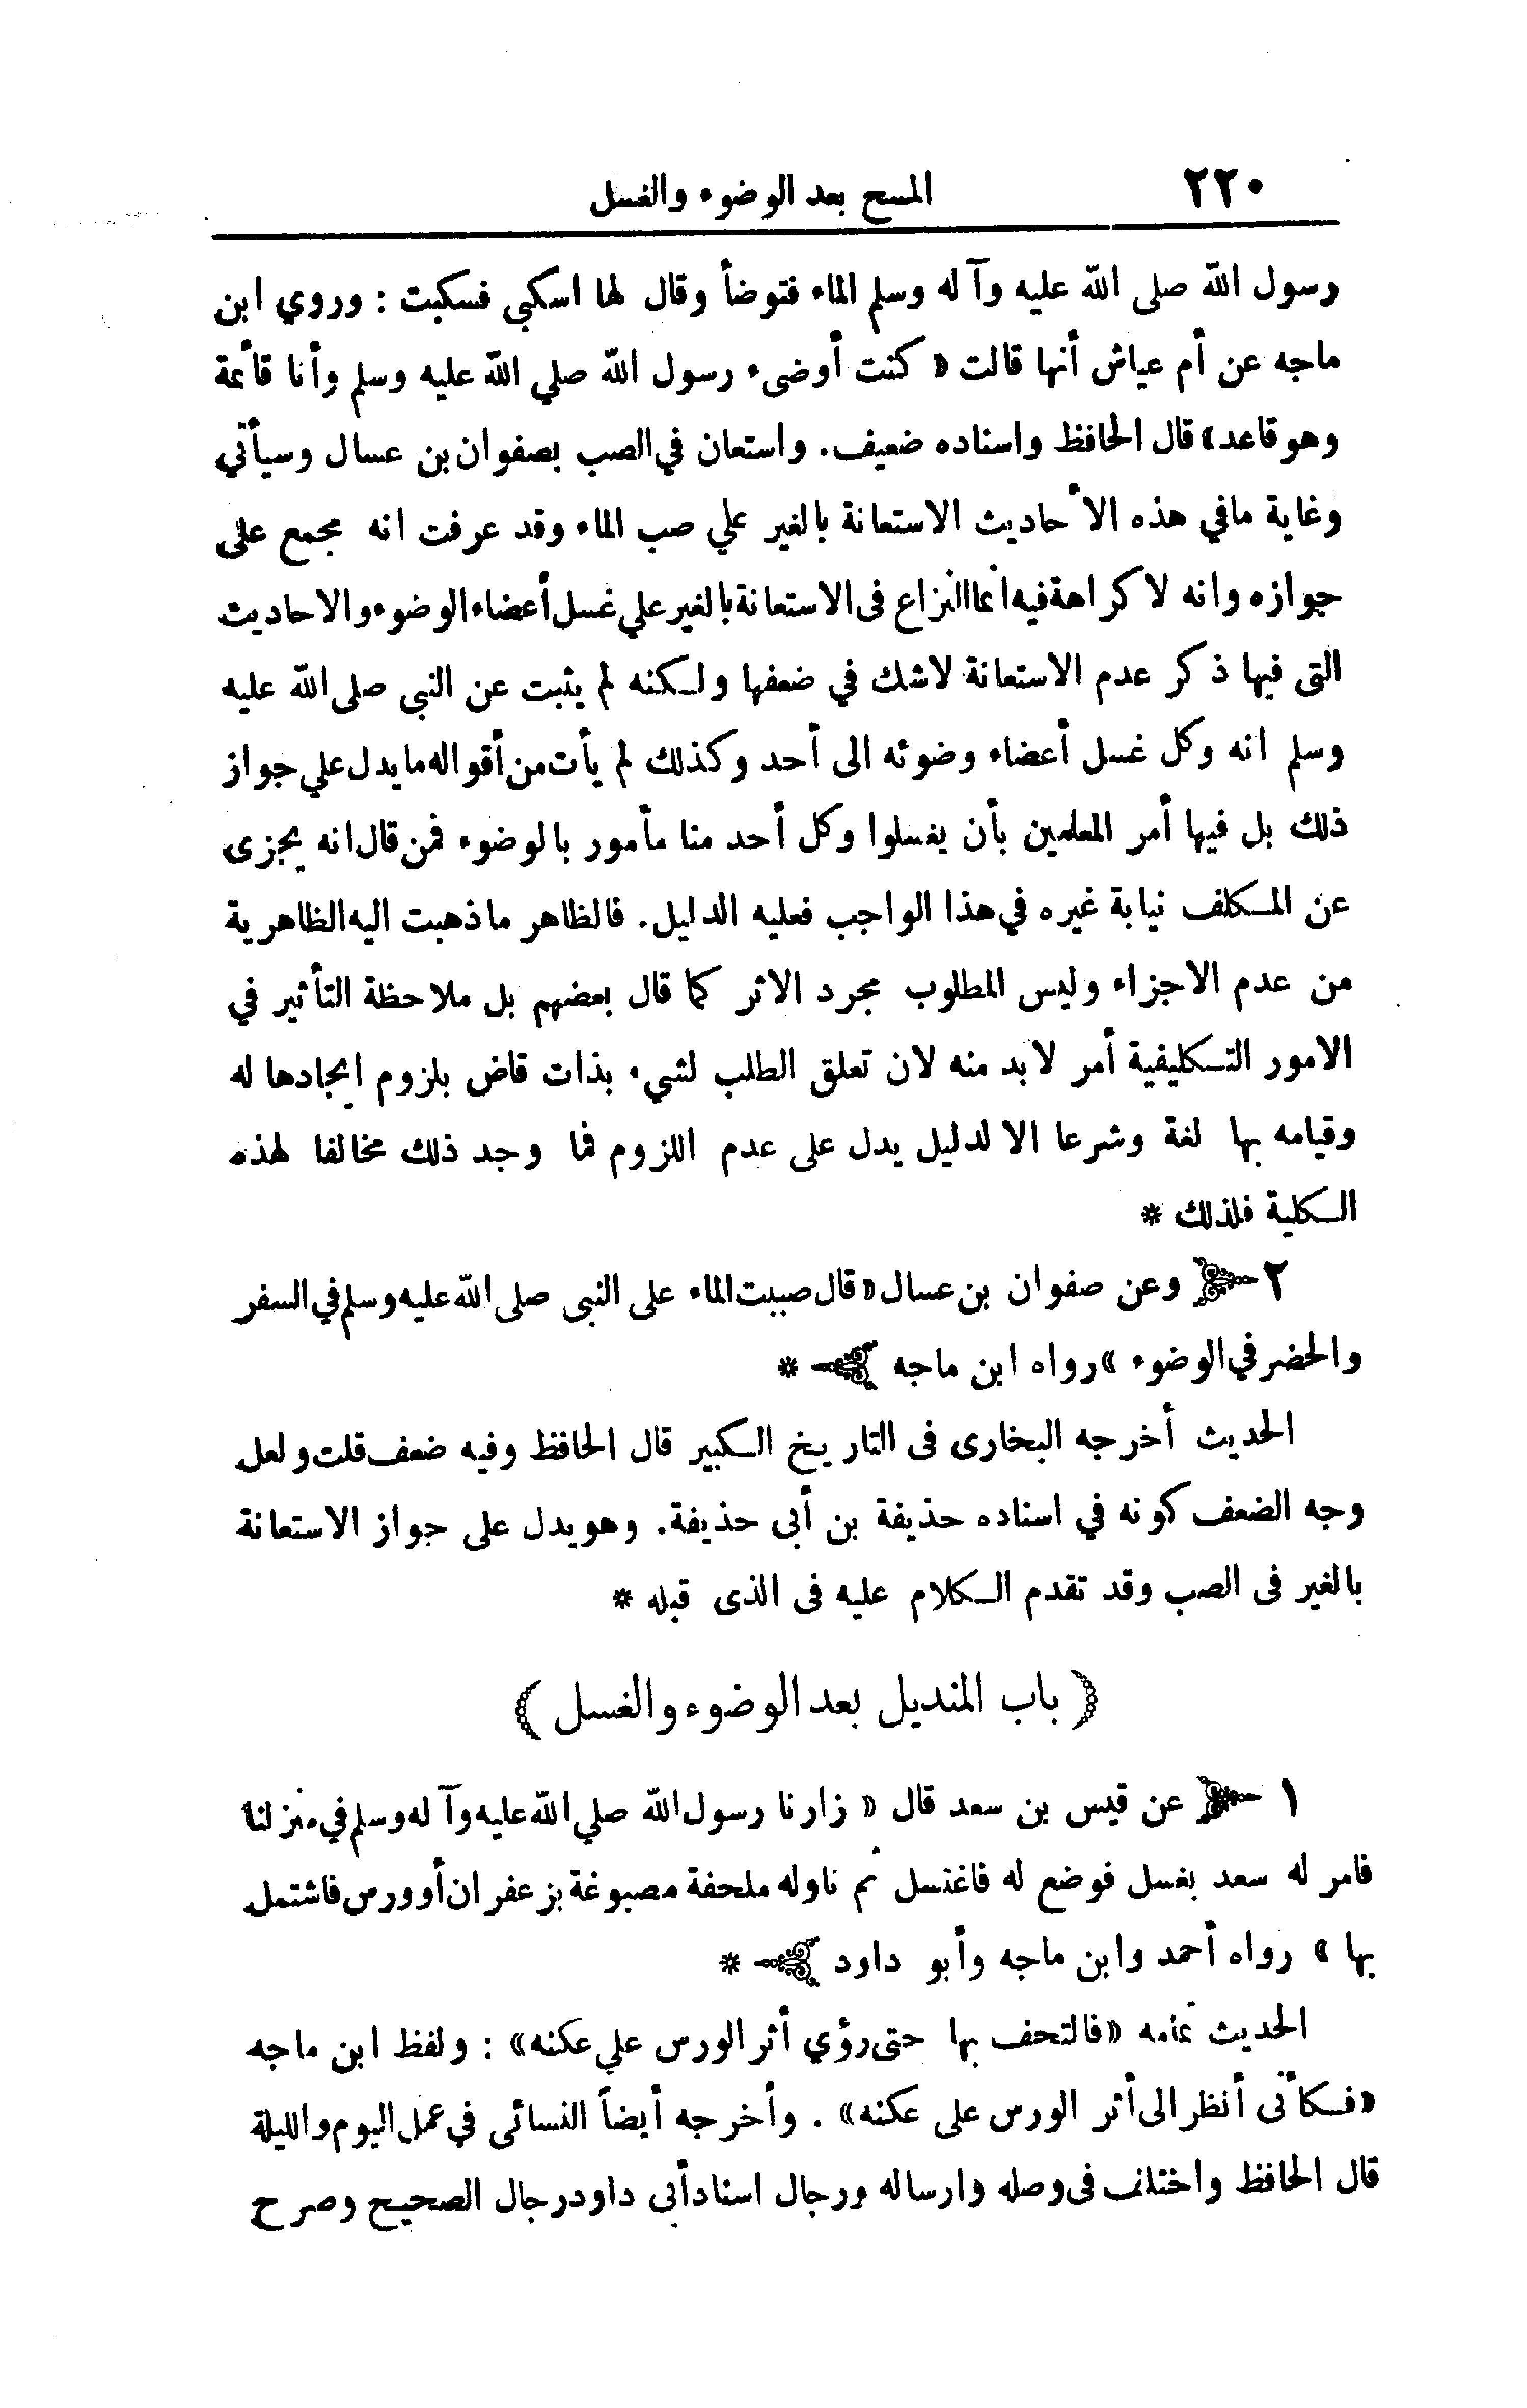 ٢٢٠ المسح بعد الوضوء والغسل
رسول الله صلى الله عليه وآله وسلم الماء فتوضأ وقال لها اسكبي فسكبت : وروي ابن
ماجه عن أم عياش أنها قالت « كنت أوضىء رسول الله صلي الله عليه وسلم وأنا قائمة
وهو قاعد » قال الحافظ واسناده ضعيف . واستعان في الصب بصفوان بن عسال وسيأتي
وغاية مافي هذه الأحاديث الاستعانة بالغير علي صب الماء وقد عرفت انه مجمع على
جوازه وانه لا كراهة فيه انما النزاع فى الاستعانة بالغير علي غسل أعضاء الوضوء والاحاديث
التى فيها ذكر عدم الاستعانة لاشك في ضعفها ولكنه لم يثبت عن النبى صلى الله عليه
وسلم انه وكل غسل أعضاء وضوئه الى أحد وكذلك لم يأت من أقواله مايدل علي جواز
ذلك بل فيها أمر المعلمين بأن يغسلوا وكل أحد منا مأمور بالوضوء فمن قال انه يجزى
عن المكلف نيابة غيره في هذا الواجب فعليه الدليل . فالظاهر ماذهبت اليه الظاهرية
من عدم الاجزاء وليس المطلوب مجرد الاثر كما قال بعضهم بل ملاحظة التأثير في
الامور التكليفية أمر لابد منه لان تعلق الطلب لشيء بذات قاض بلزوم ايجادها له
وقيامه بها لغة وشرعا الا لدليل يدل على عدم اللزوم فما وجد ذلك مخالفا لهذه
الكلية فلذلك *
٢ وعن صفوان بن عسال « قال صببت الماء على النبى صلى الله عليه وسلم في السفر
والحضر في الوضوء » رواه ابن ماجه *
الحديث أخرجه البخارى فى التاريخ الكبير قال الحافظ وفيه ضعف قلت ولعل
وجه الضعف كونه في اسناده حذيفة بن أبى حذيفة . وهو يدل على جواز الاستعانة
بالغير فى الصب وقد تقدم الكلام عليه فى الذى قبله *
( باب المنديل بعد الوضوء والغسل )
١ عن قيس بن سعد قال « زارنا رسول الله صلي الله عليه وآله وسلم في منزلنا
فامر له سعد بغسل فوضع له فاغتسل ثم ناوله ملحفة مصبوغة بزعفران أو ورس فاشتمل
بها » رواه أحمد وابن ماجه وأبو داود *
الحديث تمامه « فالتحف بها حتى رؤي أثر الورس علي عكنه » : ولفظ ابن ماجه
« فكأنى أنظر الى أثر الورس على عكنه » . وأخرجه أيضاً النسائى في عمل اليوم والليلة
قال الحافظ واختلف فى وصله وارساله ورجال اسناد أبى داود رجال الصحيح وصرح